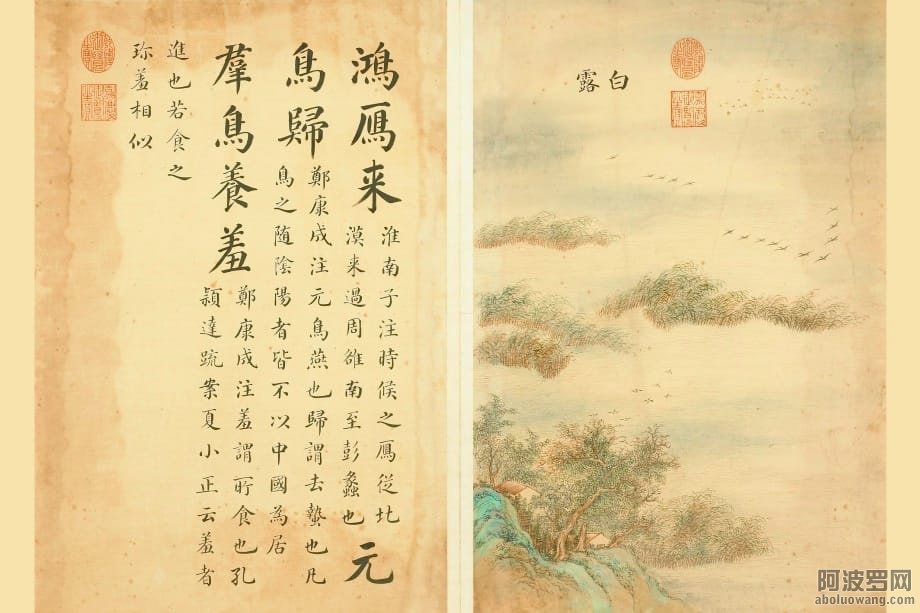 白露
鴻鴈来
淮南子注時候之鴈従北
漠来過周雒南至彭蠡也
元
鳥歸
鄭康成注元鳥燕也歸謂去蟄也凡
鳥之随陰陽者皆不以中國為居
羣鳥養羞
鄭康成注羞謂所食也孔
頴達疏案夏小正云羞者
進也若食之
珎羞相似
阿波罗网
aboluowang.com